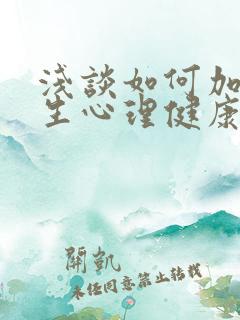 淺談如何加
生心理健康
開凱
未經同意禁止轉載